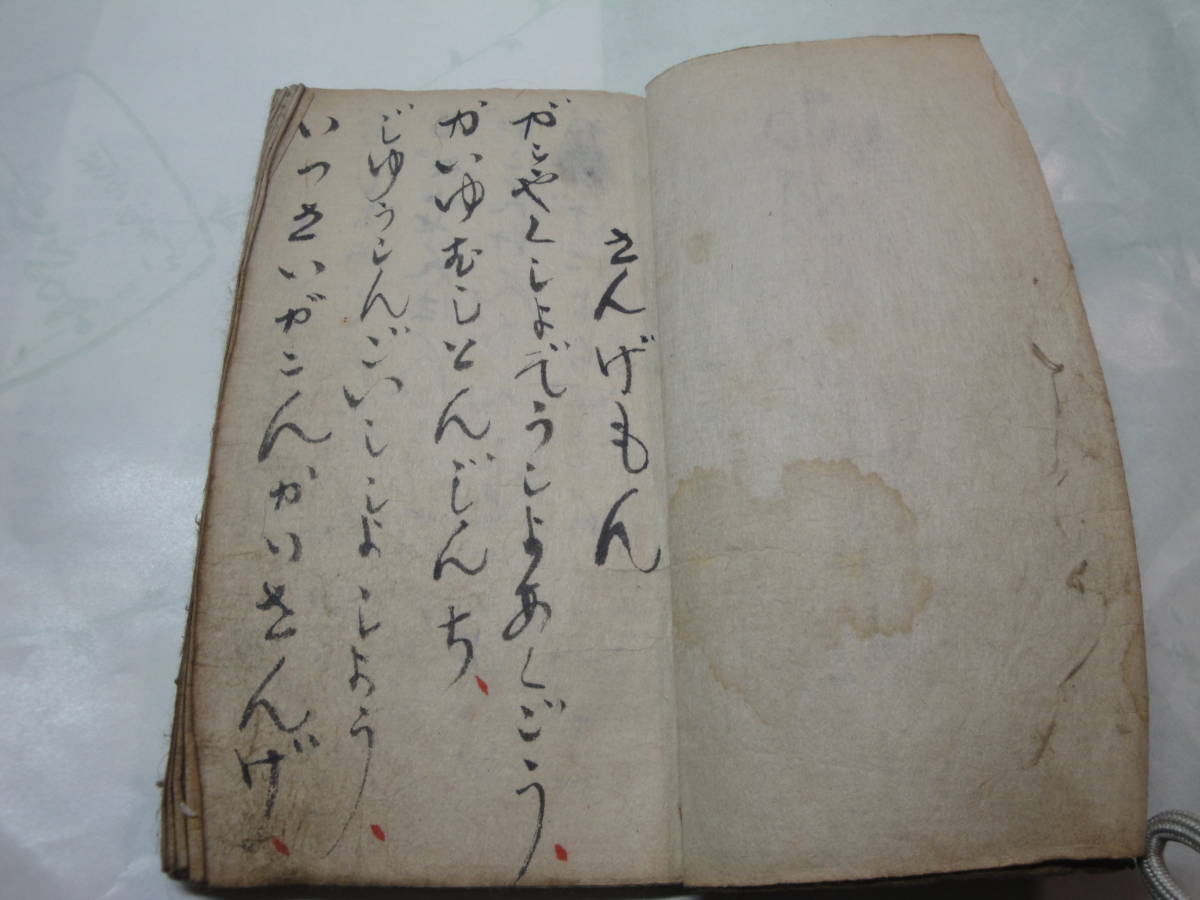 さんげもん
がしやくしよぞうしよあくごう
かいゆむしとんじんち
じゆうしんごいししよしよう
いつさいがこんかいさんげ